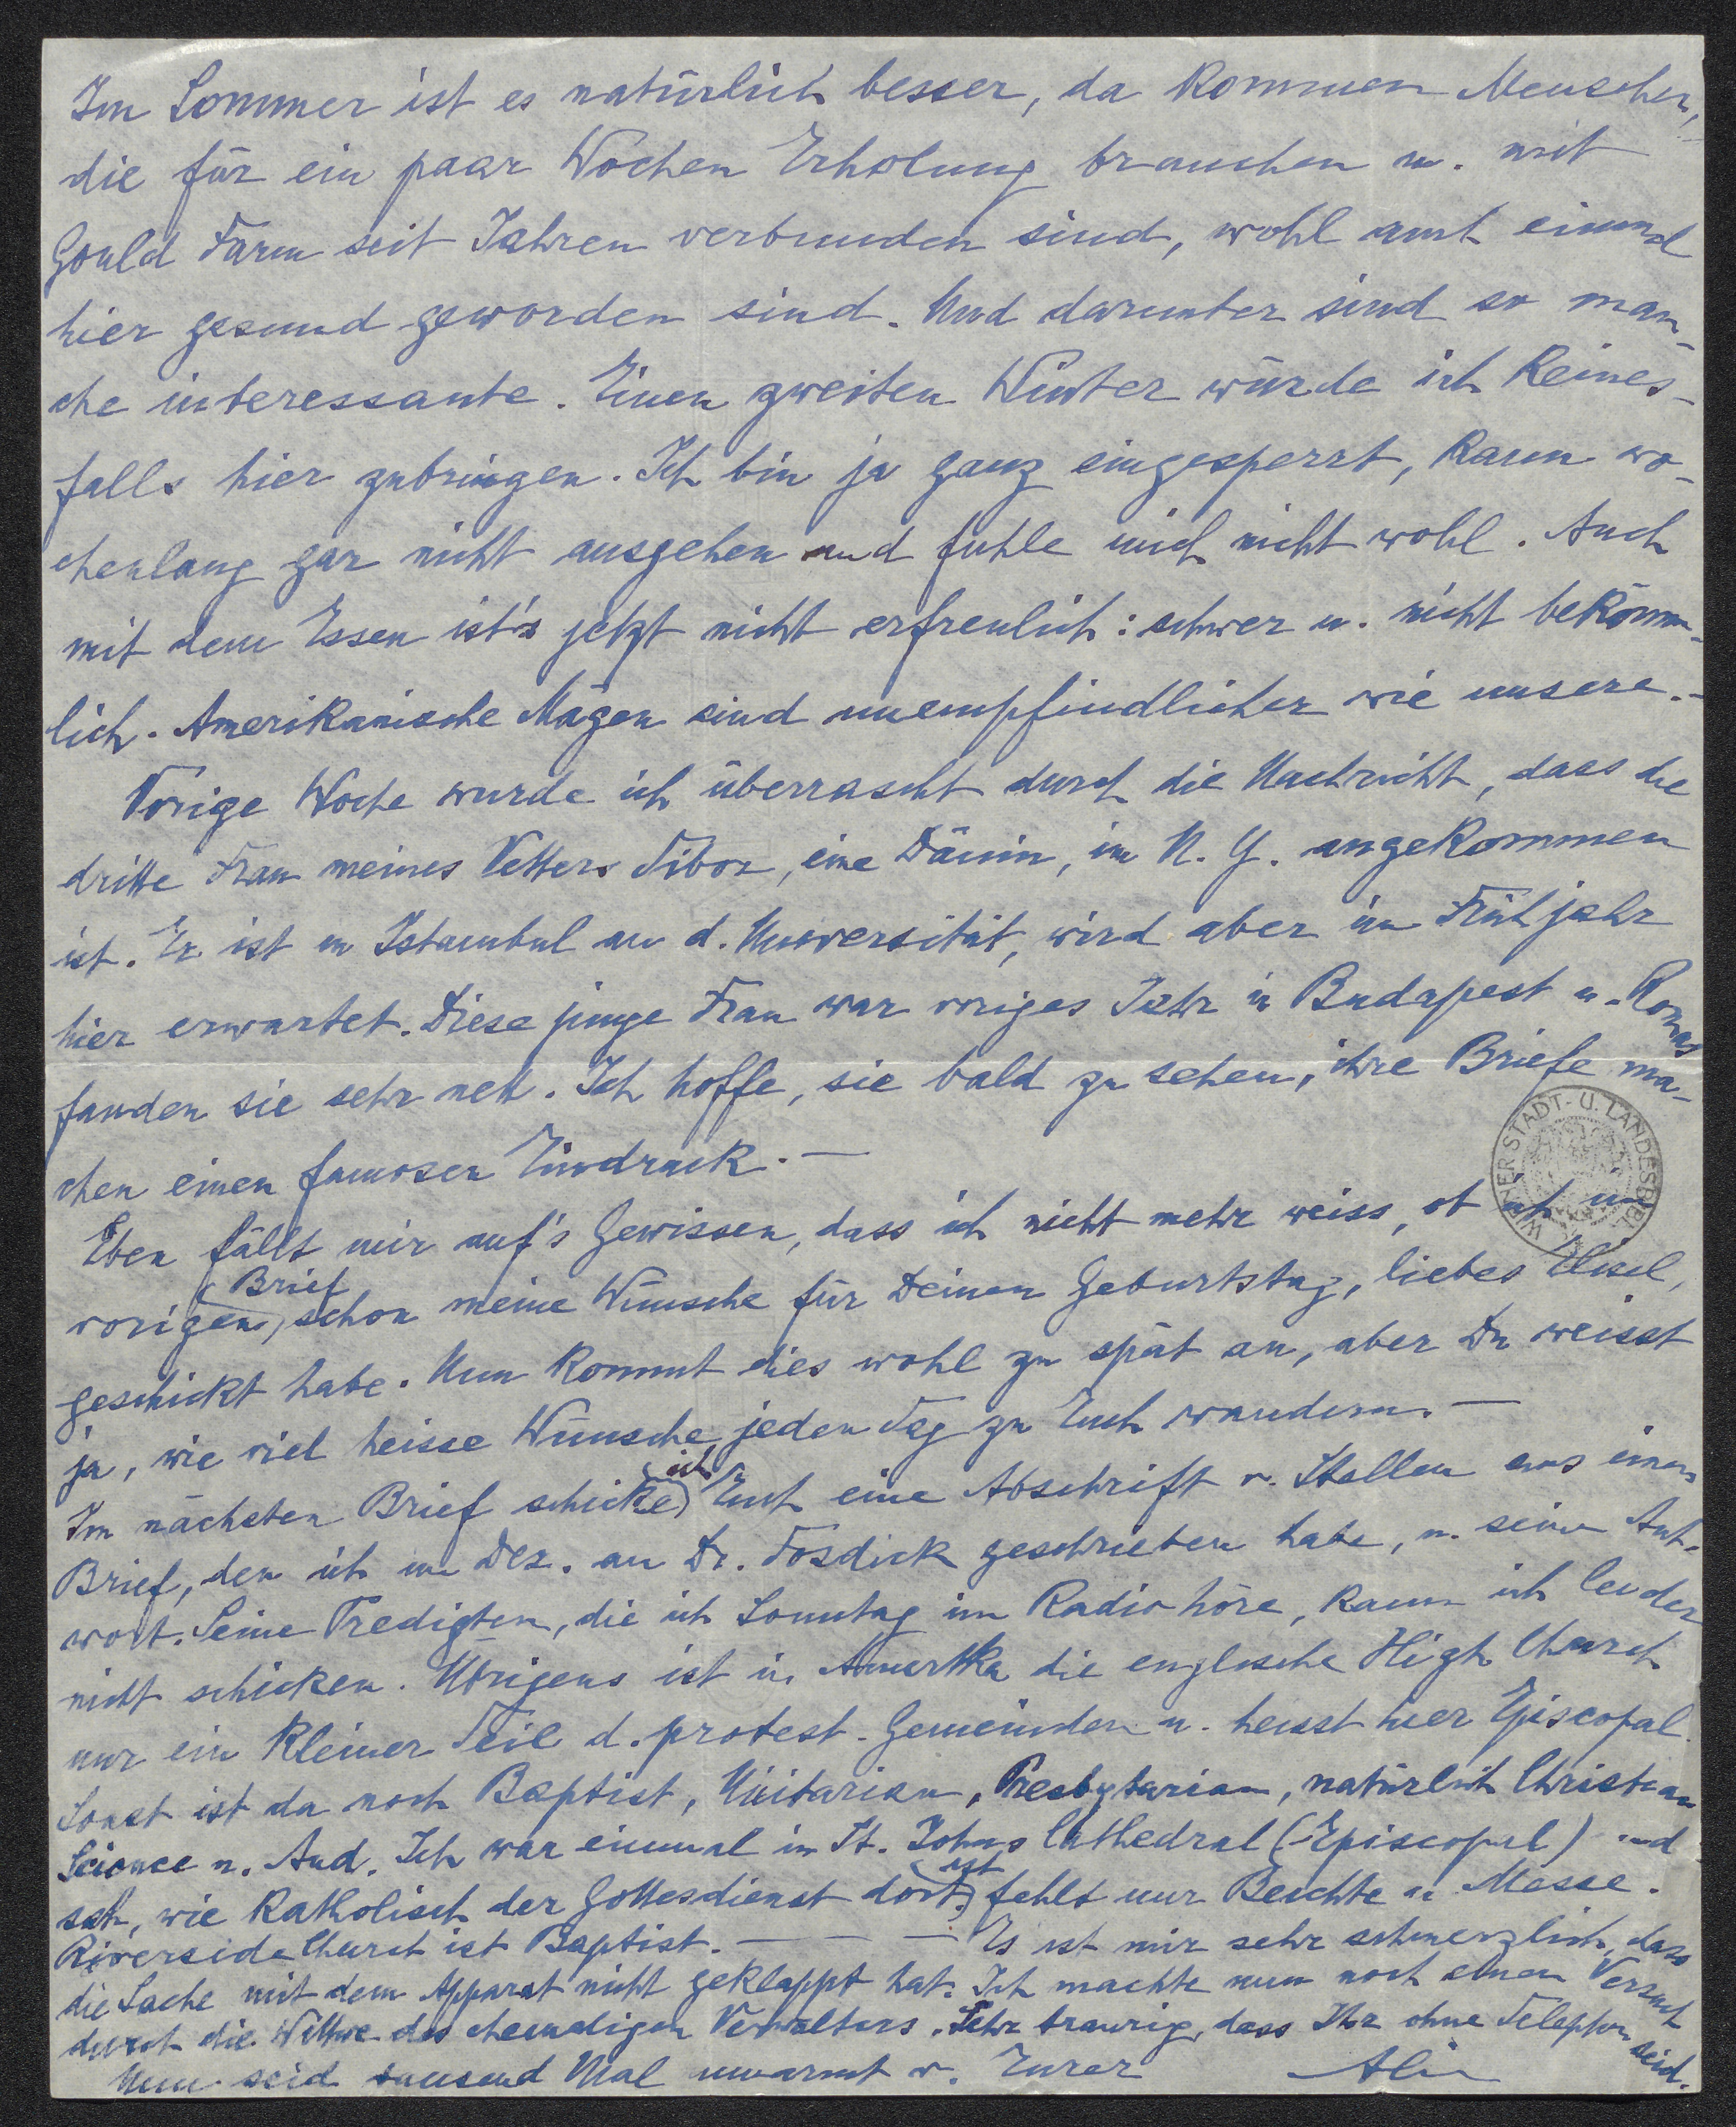 Im Sommer ist es natürlich besser, da kommen Menschen,
die für ein paar Wochen Erholung brauchen u. mit
Gould Farm seit Jahren verbunden sind, wohl auch einmal
hier gesund geworden sind. Und darunter sind so man-
che interessante. Einen zweiten Winter würde ich keines-
falls hier zubringen. Ich bin ja ganz eingesperrt, kann wo-
chenlang gar nicht ausgehen und fühle mich nicht wohl. Auch
mit dem Essen ist's jetzt nicht erfreulich: schwer u. nicht bekömm-
lich. Amerikanische Mägen sind unempfindlicher wie unsere.-
Vorige Woche wurde ich überrascht durch die Nachricht, dass die
dritte Frau meines Vetters Tibor, eine Dänin, in N. Y. angekommen
ist. Er ist in Istambul an d. Universität, wird aber im Frühjahr
hier erwartet. Diese junge Frau war voriges Jahr in Budapest u. Romas
fanden sie sehr nett. Ich hoffe, sie bald zu sehen, ihre Briefe ma-
chen einen famosen Eindruck. —
WIENER STADT- U. LANDESBIBL.
Eben fällt mir auf's Gewissen, dass ich nicht mehr weiss, ob ich im
vorigen Brief schon meine Wünsche für Deinen Geburtstag, liebes Elisel,
geschickt habe. Nun kommt dies wohl zu spät an, aber Du weisst
ja, wie viel heisse Wünsche jeden Tag zu Euch wandern. —
Im nächsten Brief schicke ich Euch eine Abschrift v. Stellen aus einem
Brief, den ich im Dez. an Dr. Fosdick geschrieben habe, u. seine Ant-
wort. Seine Predigten, die ich Sonntag im Radio höre, kann ich leider
nicht schicken. Übrigens ist in Amerika die englische High Church
nur ein kleiner Teil d. protest. Gemeinden u. heisst hier Episcopal.
Sonst ist da noch Baptist, Unitarian, Presbytarian, natürlich Christian
Science u. And. Ich war einmal in St. Johns Cathedral (Episcopal) und
sah, wie katholisch der Gottesdienst dort ist, fehlt nur Beichte u. Messe.
Riverside Church ist Baptist. — — — Es ist mir sehr schmerzlich, dass
die Sache mit dem Apparat nicht geklappt hat. Ich machte nun noch einen Versuch
durch die Wittwe des ehemaligen Verwalters. Sehr traurig, dass Ihr ohne Telephon seid.
Nun seid tausend Mal umarmt v. Eurer